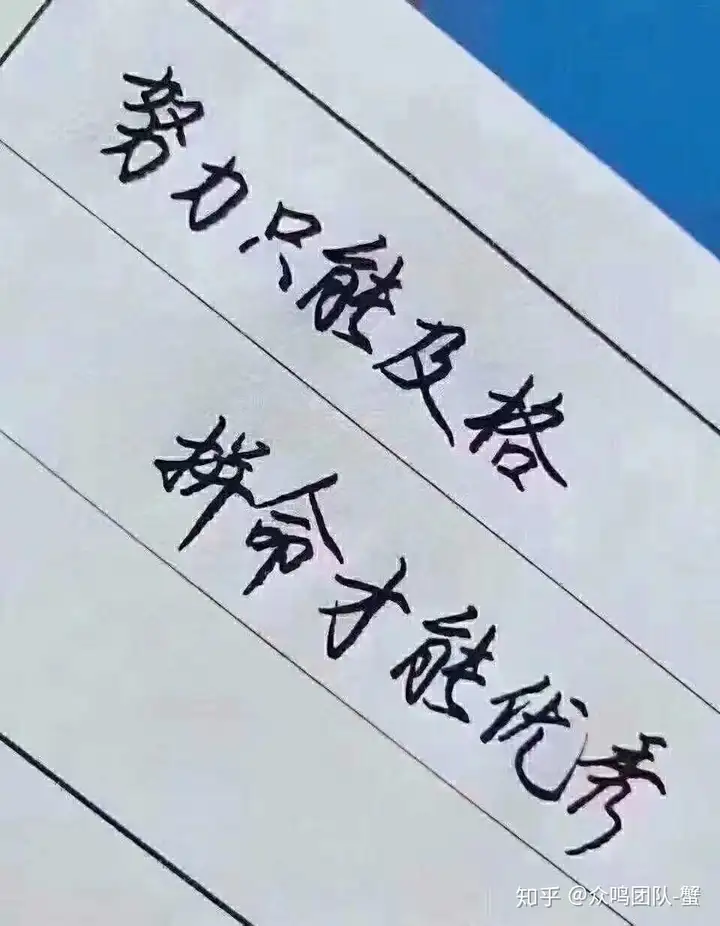 努力只能及格
拼命才能优秀
知乎 @众鸣团队-蟹